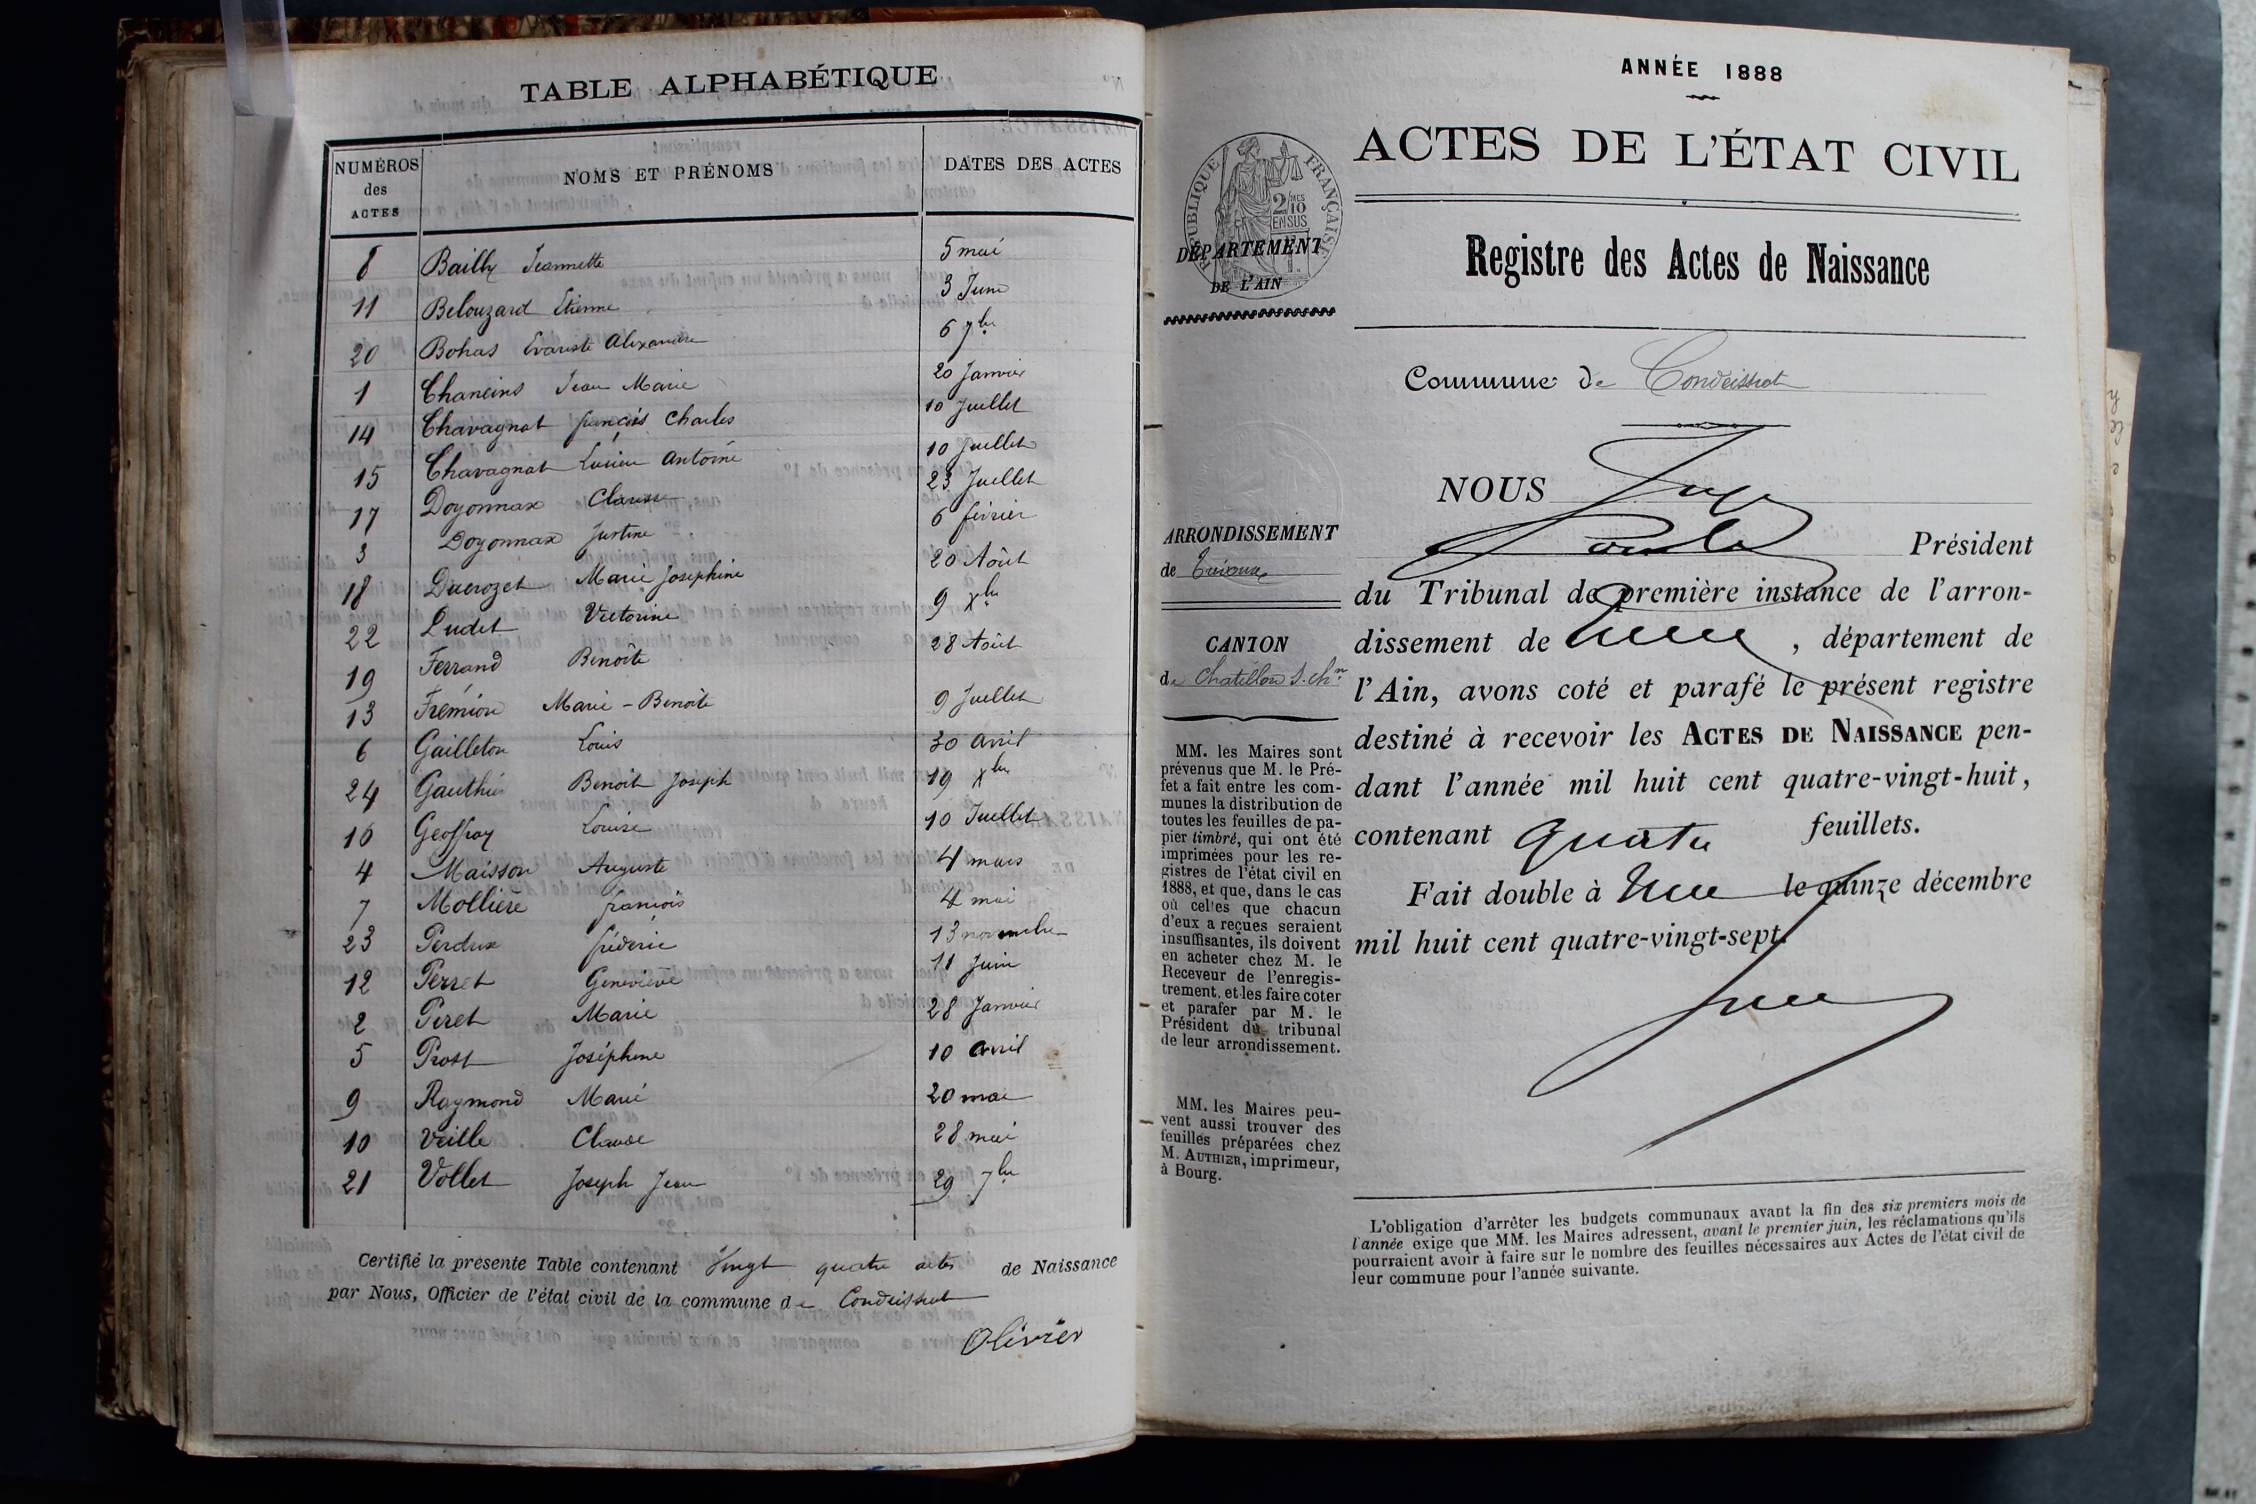 TABLE ALPHABÉTIQUE
NUMÉROS des ACTES NOMS ET PRÉNOMS DATES DES ACTES
8 Bailly Jeannette 5 mai
11 Belouzard Etienne 3 Juin
20 Bohas Evariste Alexandre 6 7bre
1 Chaneins Jean Marie 20 Janvier
14 Chavagnat françois Charles 10 Juillet
15 Chavagnat Lucien Antoine 10 Juillet
17 Doyonnax 23 Juillet
3 Doyonnax Justine 6 février
18 Ducrozet Marie Joséphine 20 Août
22 Ludet Victorine 9 Xbre
19 Ferrand Benoîte 28 Août
13 Frémion Marie - Benoîte 9 Juillet
6 Gailleton Louis 30 avril
24 Gauthier Benoit Joseph 19 Xbre
16 Geoffray Louise 10 Juillet
4 Maisson Auguste 4 mars
7 Mollière françois 4 mai
23 Perdrix fréderic 13 novembre
12 Perret Geneviève 11 Juin
2 Piret Marie 28 Janvier
5 Prost Joséphine 10 avril
9 Raymond Marie 20 mai
10 Veille Claude 28 mai
21 Vollet Joseph Jean 29 7bre
Certifié la présente Table contenant Vingt quatre actes de Naissance
par Nous, Officier de l'état civil de la commune de Condeissiat
Olivier
ANNÉE 1888
ACTES DE L'ÉTAT CIVIL
RÉPUBLIQUE FRANÇAISE
2/10 EN SUS
DÉPARTEMENT
DE L'AIN
Registre des Actes de Naissance
Commune de Condeissiat
ARRONDISSEMENT
de Trévoux
CANTON
de Chatillon s. Chne
MM. les Maires sont
prévenus que M. le Pré-
fet a fait entre les com-
munes la distribution de
toutes les feuilles de pa-
pier timbré, qui ont été
imprimées pour les re-
gistres de l'état civil en
1888, et que, dans le cas
où celles que chacun
d'eux a reçues seraient
insuffisantes, ils doivent
en acheter chez M. le
Receveur de l'enregis-
trement, et les faire coter
et parafer par M. le
Président du tribunal
de leur arrondissement.
MM. les Maires peu-
vent aussi trouver des
feuilles préparées chez
M. AUTHIER, imprimeur,
à Bourg.
NOUS
Président
du Tribunal de première instance de l'arron-
dissement de , département de
l'Ain, avons coté et parafé le présent registre
destiné à recevoir les ACTES DE NAISSANCE pen-
dant l'année mil huit cent quatre-vingt-huit,
contenant quatre feuillets.
Fait double à le quinze décembre
mil huit cent quatre-vingt-sept.
L'obligation d'arrêter les budgets communaux avant la fin des six premiers mois de
l'année exige que MM. les Maires adressent, avant le premier juin, les réclamations qu'ils
pourraient avoir à faire sur le nombre des feuilles nécessaires aux Actes de l'état civil de
leur commune pour l'année suivante.